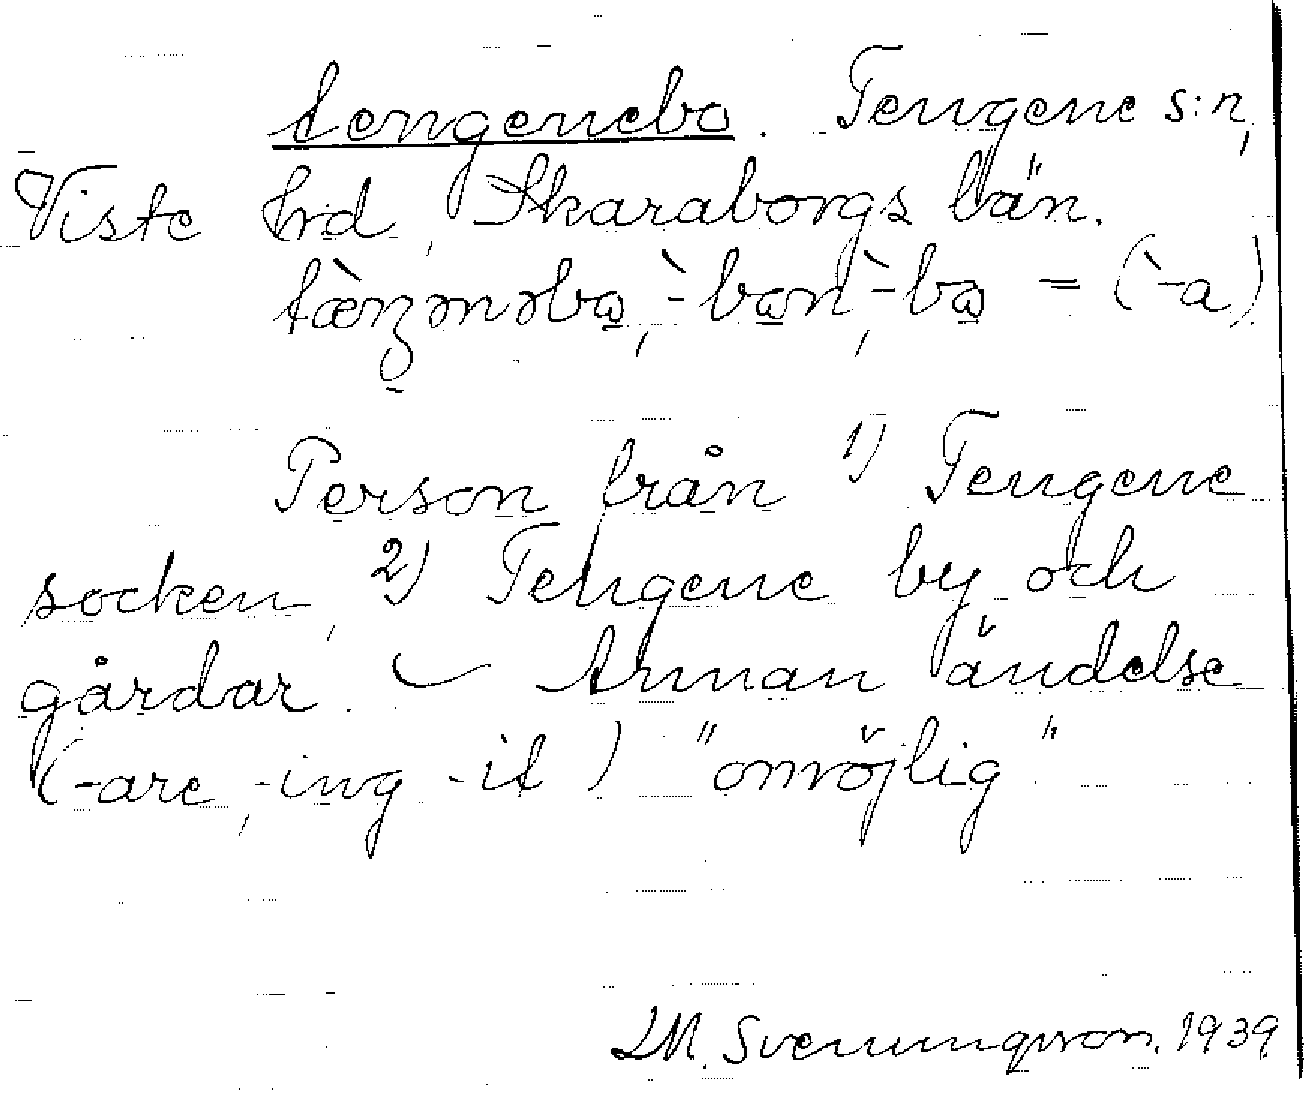 tengenebo. Tengene s:n,
Viste hrd, Skaraborgs län.
-bon, -bo = (-a)
Person från 1) Tengene
socken, 2) Tengene by och
gårdar. – Annan ändelse
(-are, -ing -it) "omöjlig"
LM. Svenungsson. 1939